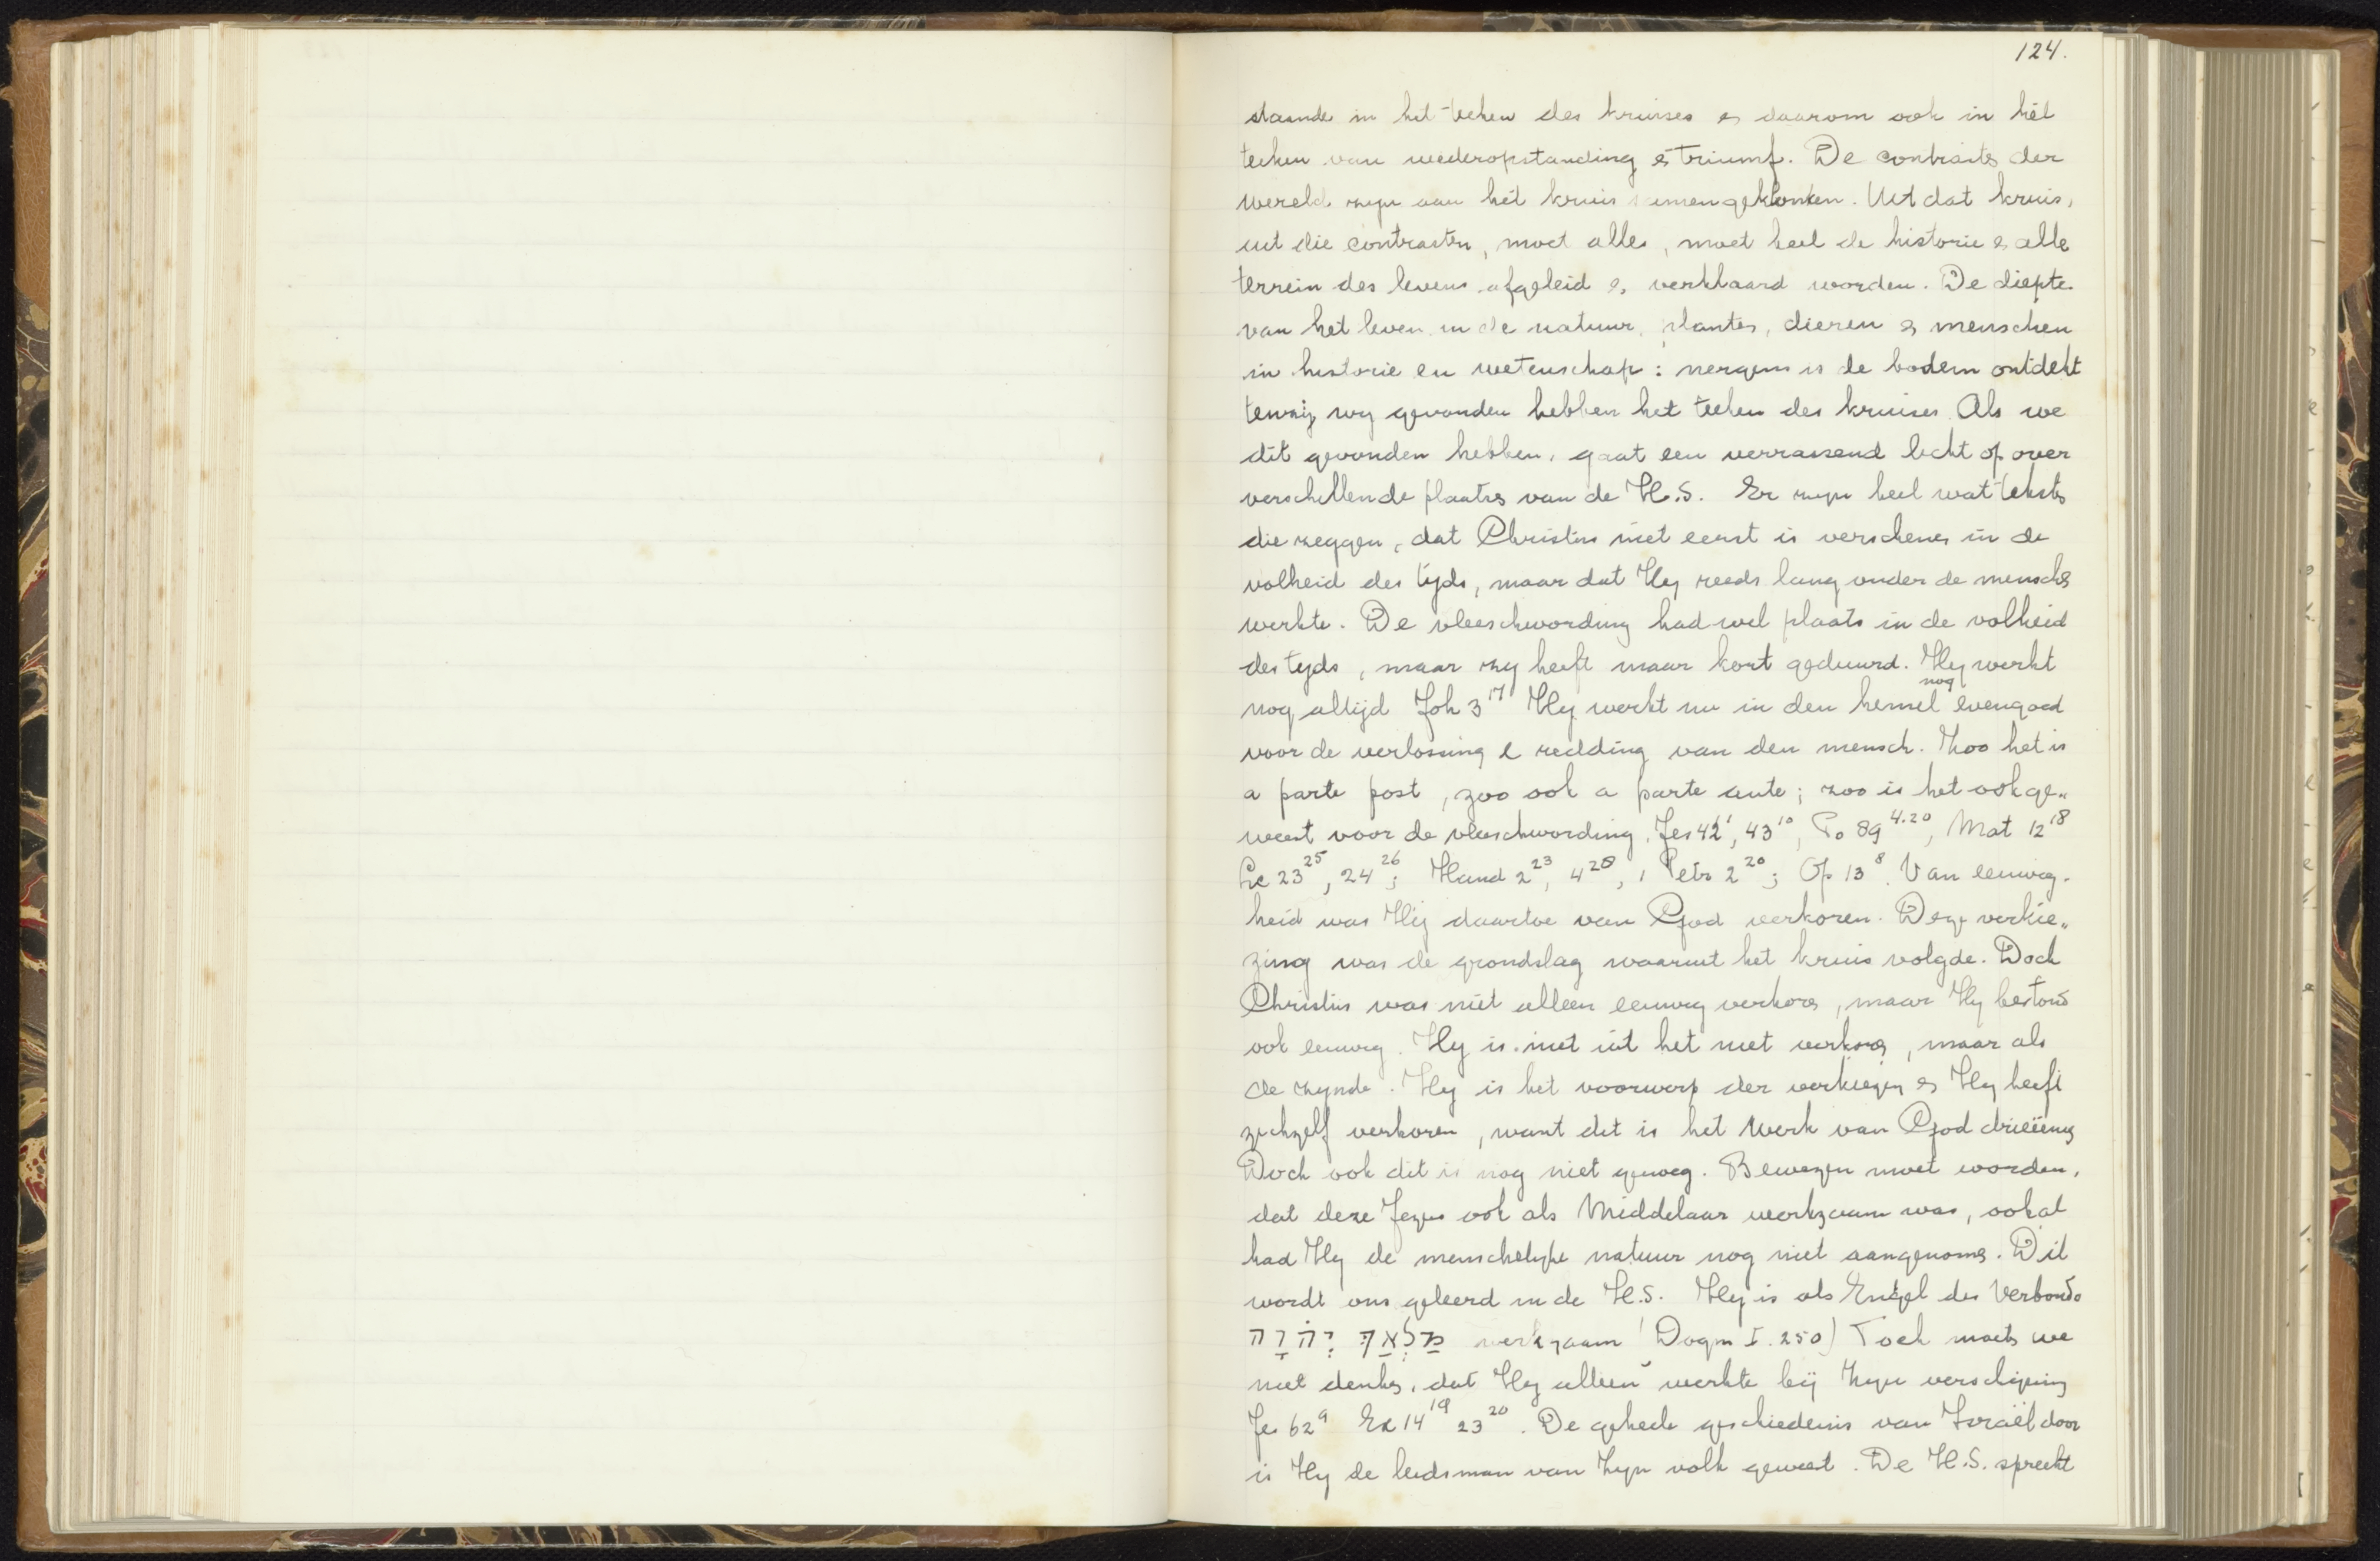 124.
staande in het teeken des kruises en daarom ook in het
teeken van wederopstanding en triumf. De contrasten der
wereld zyn aan het kruis samengeklonken. Uit dat kruis,
uit die contrasten, moet alles, moet heel de historie en alle
terrein des levens afgeleid en verklaard worden. De diepte
van het leven in de natuur, planten, dieren en menschen
in historie en wetenschap: nergens is de bodem ontdekt
tenzij wy gevonden hebben het teeken des kruises. Als we
dit gevonden hebben, gaat een verrassend licht op over
verschillende plaatsen van de H.S. Er zyn heel wat teksten
die zeggen, dat Christus niet eerst is verschenen in de
volheid des tijds, maar dat Hy reeds lang onder de menschen
werkte. De vleeschwording had wel plaats in de volheid
des tyds, maar zy heeft maar kort geduurd. Hy werkt
nog altijd Joh 3 17 Hy werkt nu in den hemel nog evengoed
voor de verlossing en redding van den mensch. Zoo het is
a parte post, zoo ook a parte ante; zoo is het ook ge„
weest voor de vleeschwording. Jes 42 1, 43 10, Ps 89 4.20, Mat 12 18
Lc 23 25, 24 26; Hand 2 23, 4 28, 1 Petr 2 20; Op 13 8. Van eeuwig-
heid was Hij daartoe van God verkoren. Deze verkie„
zing was de grondslag waaruit het kruis volgde. Doch
Christus was niet alleen eeuwig verkoren, maar Hy bestond
ook eeuwig. Hy is niet uit het niet verkoren, maar als
de zynde. Hy is het voorwerp der verkiezing en Hy heeft
zichzelf verkoren, want dit is het werk van God drieëenig
Doch ook dit is nog niet genoeg. Bewezen moet worden,
dat deze Jezus ook als Middelaar werkzaam was, ook al
had Hy de menschelyke natuur nog niet aangenomen. Dit
wordt ons geleerd in de H.S. Hy is als Engel des Verbonds
מַלְאַךְ יְהֹוָה werkzaam (Dogm I. 250) Toch moeten we
niet denken, dat Hy alleen werkte bij Zyn verschijning
Jes 62 9 Ex 14 19 23 20. De geheele geschiedenis van Israël door
is Hy de leidsman van Zyn volk geweest. De H.S. spreekt